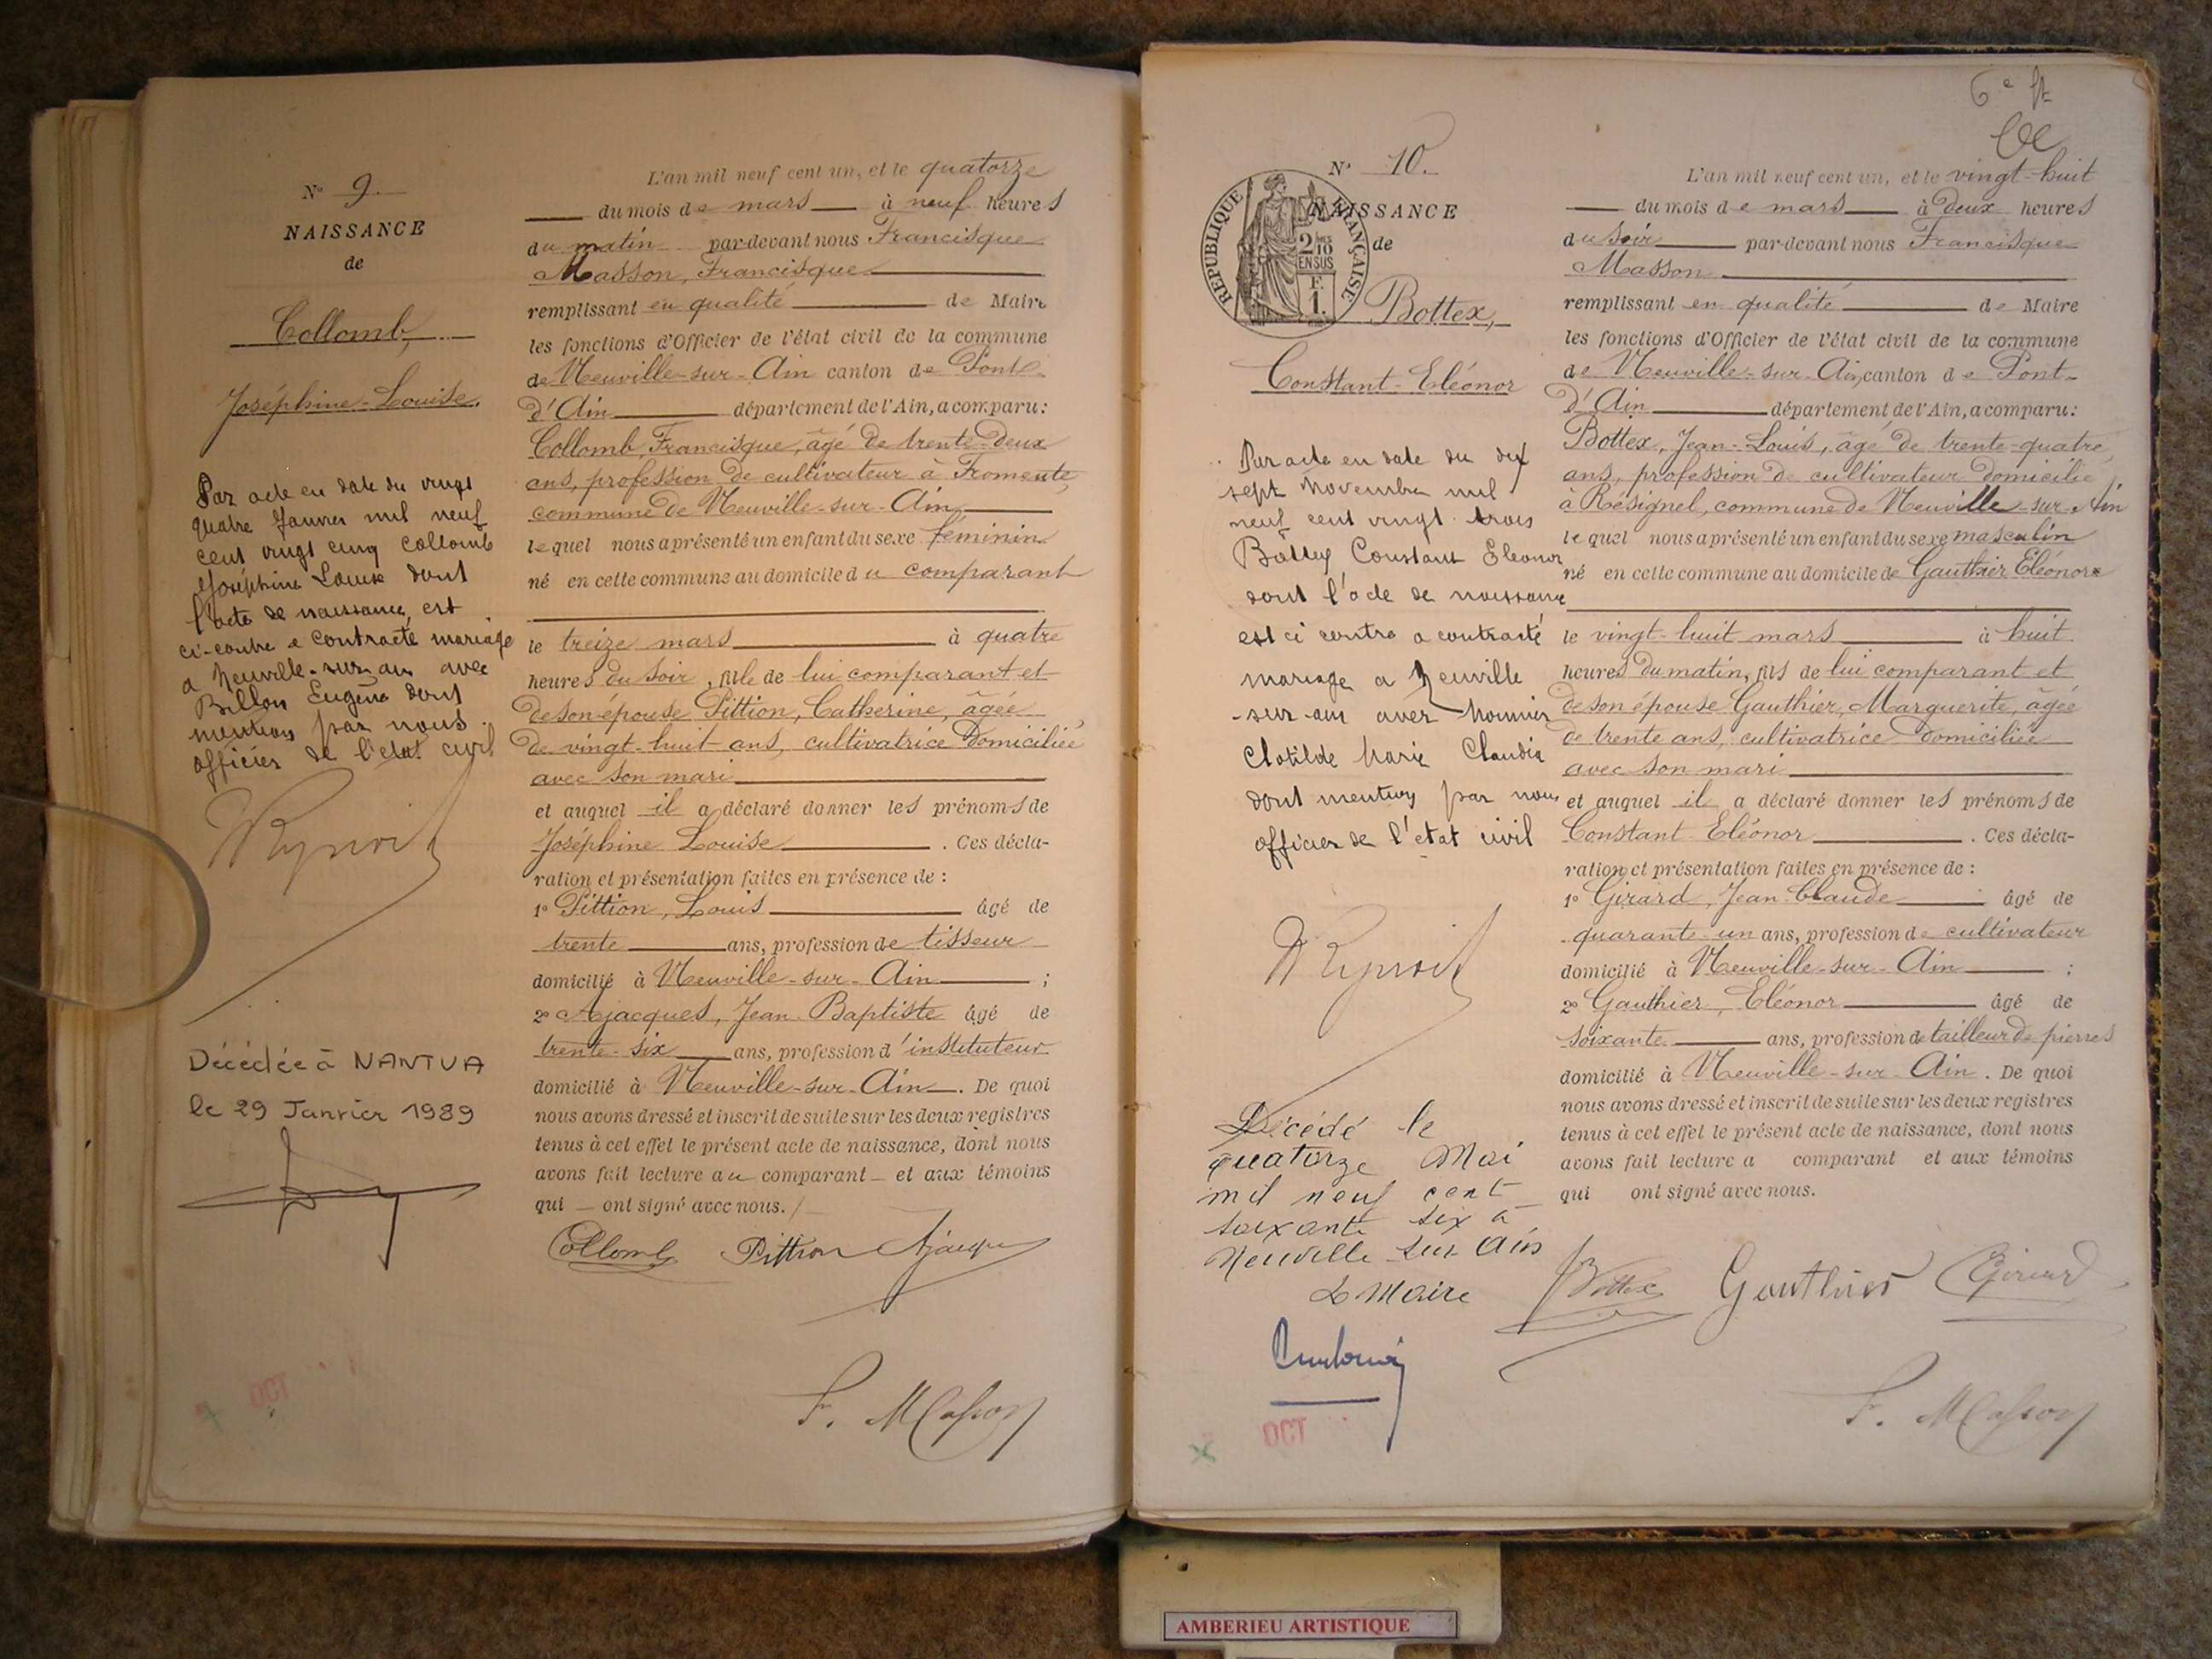 N° 9.
NAISSANCE
de
Collomb,
Joséphine-Louise.
Par acte en date du vingt
quatre Janvier mil neuf
cent vingt cinq Collomb
Joséphine Louise dont
l'acte de naissance est
ci-contre a contracté mariage
a Neuville-sur-ain avec
Billon Eugène dont
mention par nous
officier de l'état civil
Décédée à NANTUA
le 29 Janvier 1989
L'an mil neuf cent un, et le quatorze
du mois de mars à neuf heures
du matin par-devant nous Francisque
Masson, Francisque
remplissant en qualité de Maire
les fonctions d'Officier de l'état civil de la commune
de Neuville-sur-Ain canton de Pont
d'Ain département de l'Ain, a comparu:
Collomb, Francisque, âgé de trente-deux
ans, profession de cultivateur à Fromente,
commune de Neuville-sur-Ain,
lequel nous a présenté un enfant du sexe féminin
né en cette commune au domicile du comparant
le treize mars à quatre
heures du soir, fille de lui comparant et
de son épouse Pittion, Catherine, âgée
de vingt-huit ans, cultivatrice domiciliée
avec son mari
et auquel il a déclaré donner les prénoms de
Joséphine Louise. Ces décla-
ration et présentation faites en présence de :
1° Pittion, Louis âgé de
trente ans, profession de tisseur
domicilié à Neuville-sur-Ain ;
2° Ajacques, Jean-Baptiste âgé de
trente-six ans, profession d'instituteur
domicilié à Neuville-sur-Ain. De quoi
nous avons dressé et inscrit de suite sur les deux registres
tenus à cet effet le présent acte de naissance, dont nous
avons fait lecture au comparant et aux témoins
qui ont signé avec nous.
Collomb Pittion Ajacques
F. Masson
OCT
6e ft
N° 10.
NAISSANCE
de
REPUBLIQUE FRANÇAISE
2/10 EN SUS
F. 1.
Bottex,
Constant-Eléonor
Par acte en date du dix
sept Novembre mil
neuf cent vingt trois
Bottex Constant Eleonor
dont l'acte de naissance
est ci contre a contracté
mariage a Neuville
-sur-ain avec Monnier
Clotilde Marie Claudia
dont mention par nous
officier de l'etat civil
Décédé le
quatorze Mai
mil neuf cent
soixante six à
Neuville sur Ain
Le Maire
OCT
L'an mil neuf cent un, et le vingt-huit
du mois de mars à deux heures
du soir par-devant nous Francisque
Masson
remplissant en qualité de Maire
les fonctions d'Officier de l'état civil de la commune
de Neuville-sur-Ain, canton de Pont-
d'Ain département de l'Ain, a comparu:
Bottex, Jean-Louis, âgé de trente-quatre
ans, profession de cultivateur domicilié
à Résignel, commune de Neuville-sur-Ain
lequel nous a présenté un enfant du sexe masculin
né en cette commune au domicile de Gauthier Eléonore
le vingt-huit mars à huit
heures du matin, fils de lui comparant et
de son épouse Gauthier, Marguerite, âgée
de trente ans, cultivatrice domiciliée
avec son mari
et auquel il a déclaré donner les prénoms de
Constant Eléonor. Ces décla-
ration et présentation faites en présence de :
1° Girard, Jean-Claude âgé de
quarante-un ans, profession de cultivateur
domicilié à Neuville-sur-Ain ;
2° Gauthier, Eléonor âgé de
soixante ans, profession de tailleur de pierres
domicilié à Neuville-sur-Ain. De quoi
nous avons dressé et inscrit de suite sur les deux registres
tenus à cet effet le présent acte de naissance, dont nous
avons fait lecture a comparant et aux témoins
qui ont signé avec nous.
Bottex Gauthier Girard
F. Masson
AMBERIEU ARTISTIQUE